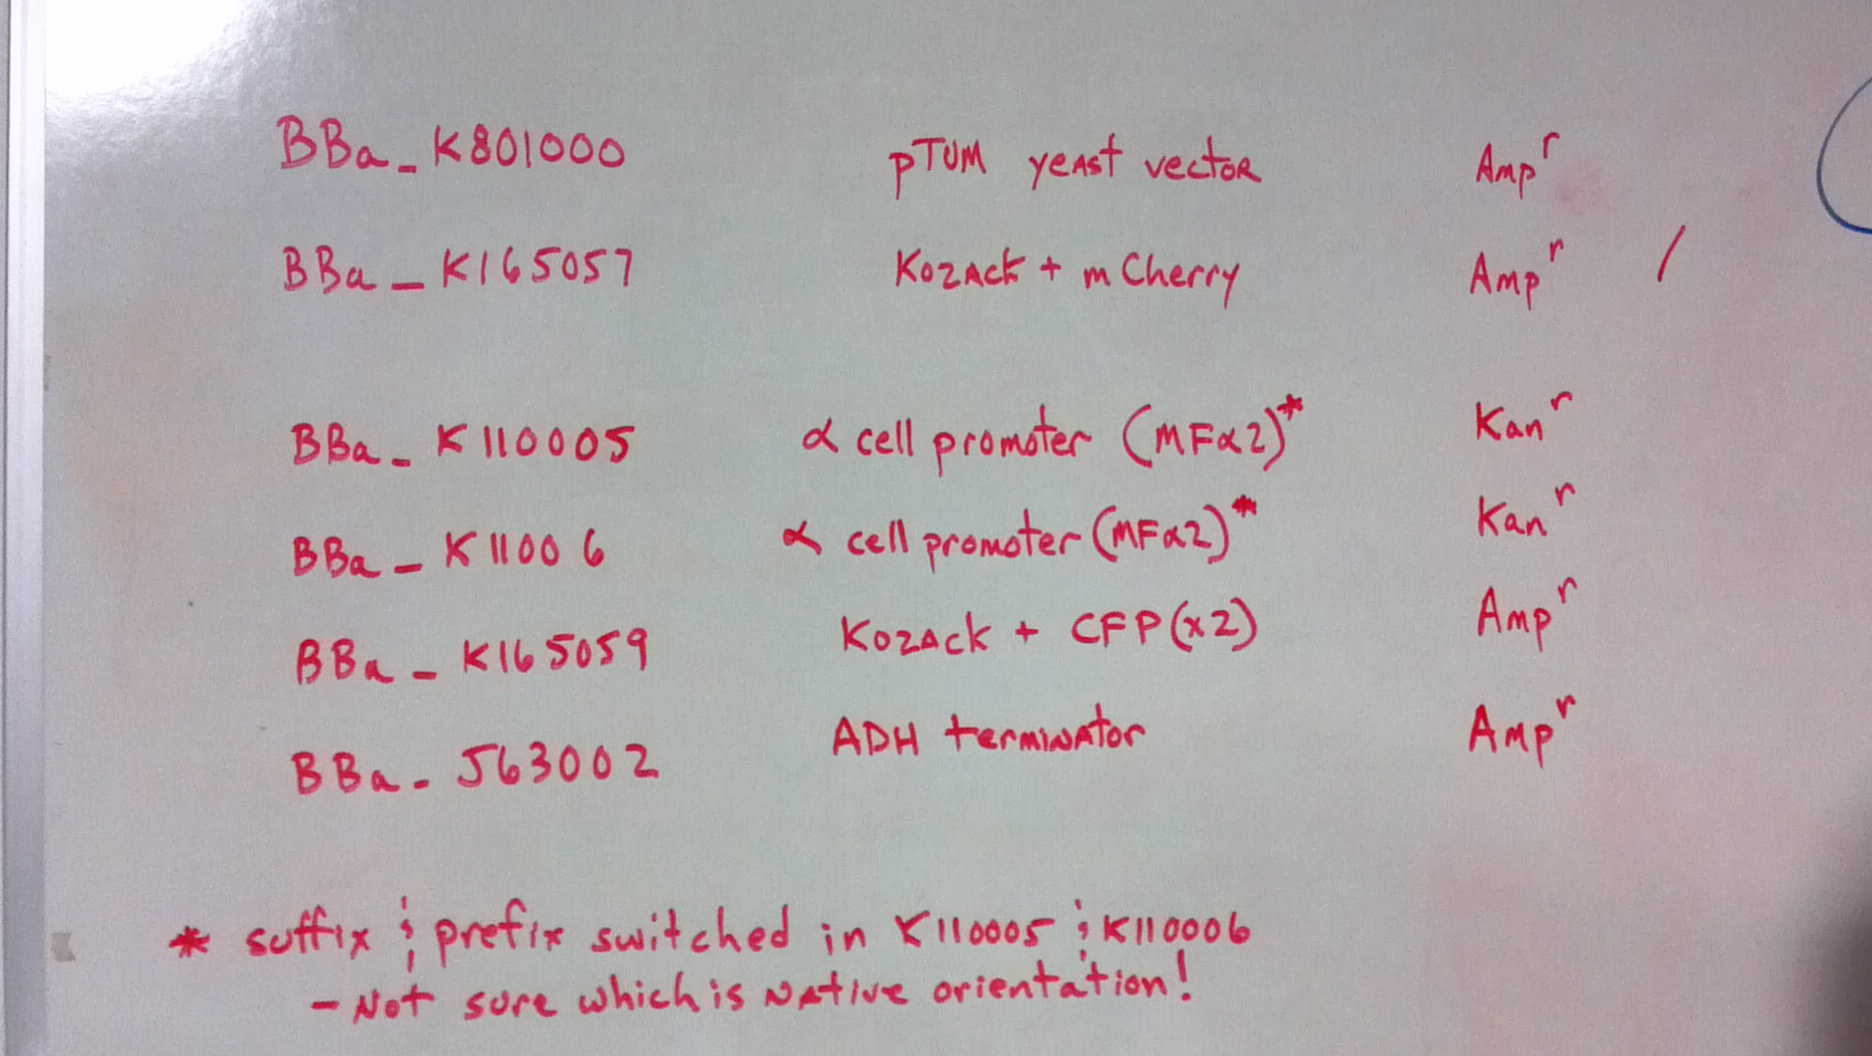 BBa_K801000 pTUM yeast vector Amp^r
BBa_K165057 Kozack + mCherry Amp^r /
BBa_K110005 α cell promoter (MFα2)* Kan^r
BBa_K11006 α cell promoter (MFα2)* Kan^r
BBa_K165059 Kozack + CFP (x2) Amp^r
BBa_J63002 ADH terminator Amp^r
* suffix & prefix switched in K110005 & K110006
- Not sure which is native orientation!